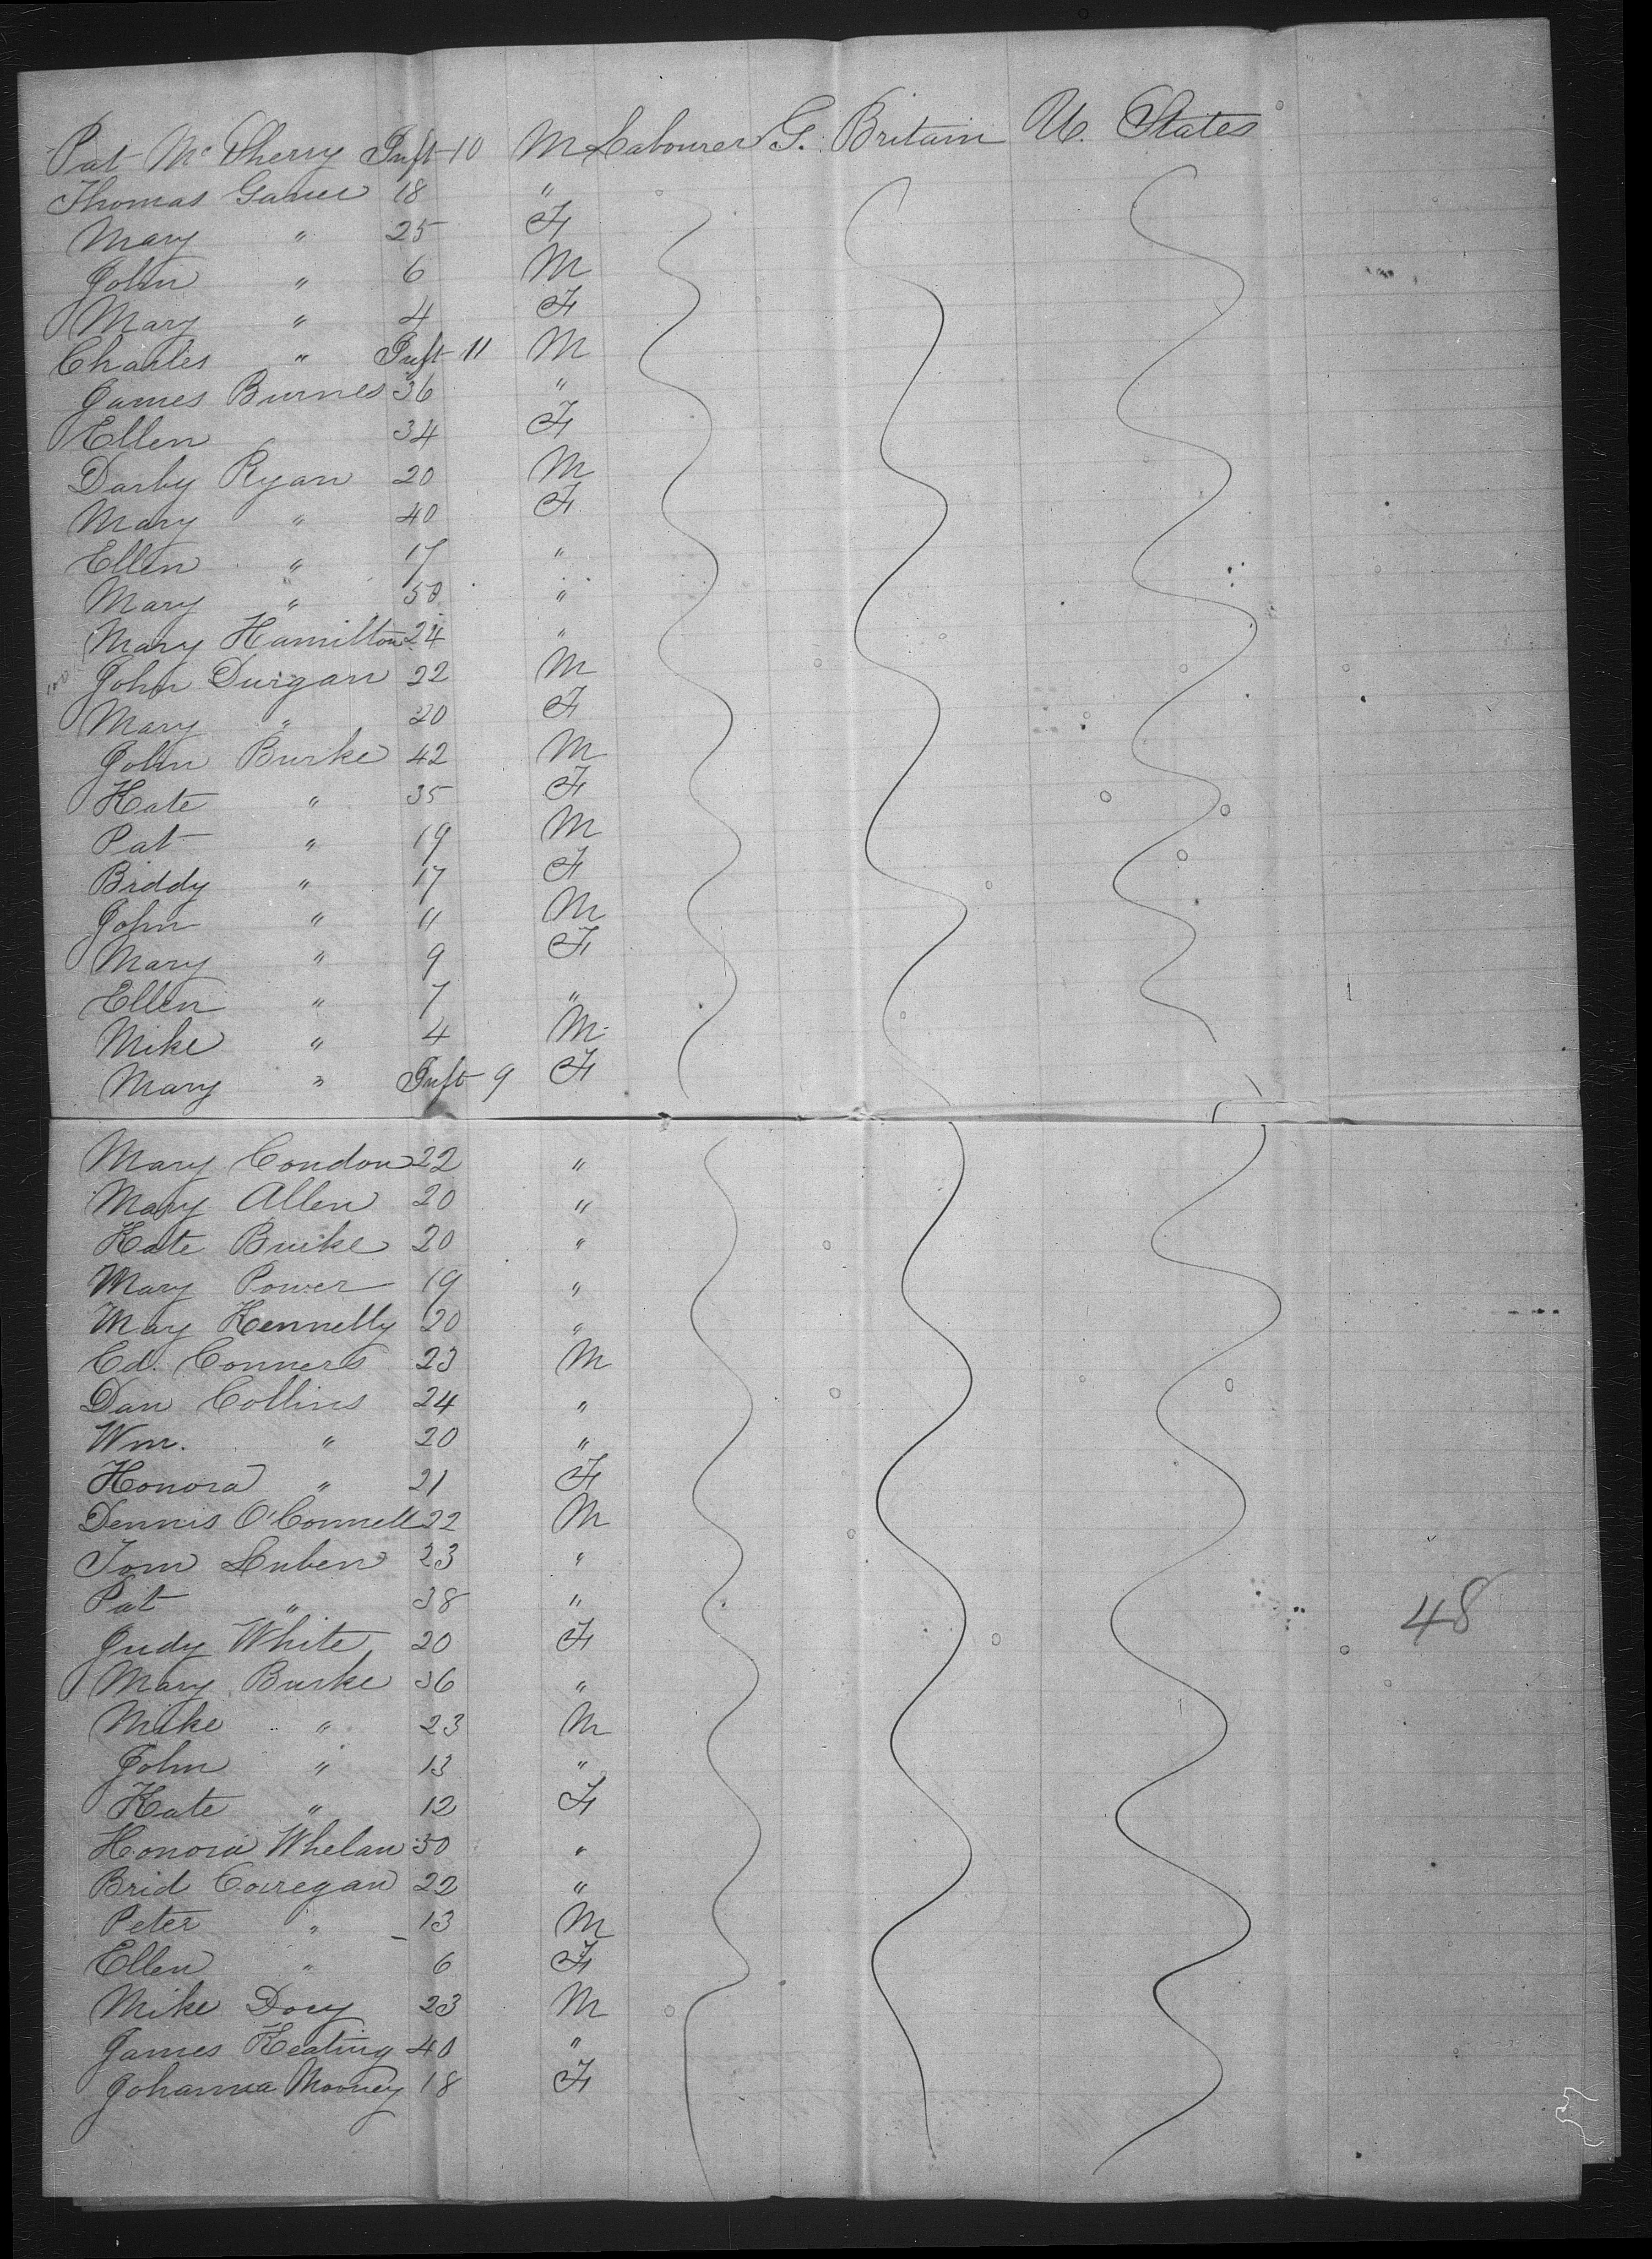 Pat McSherry Inft 10 M Labourer G. Britain U. States
Thomas 18 "
Mary " 25 F
John " 6 M
Mary " 4 F
Charles " Inft 11 M
James Burnes 36 "
Ellen 34 F
Darby Ryan 20 M
Mary " 40 F
Ellen " 17 "
Mary " 50 "
Mary Hamilton 24 "
John Durgan 22 M
Mary " 20 F
John Burke 42 M
Kate " 35 F
Pat " 19 M
Biddy " 17 F
John " 11 M
Mary " 9 F
Ellen " 7 "
Mike " 4 M
Mary " Inft 9 F
Mary Condon 22 "
Mary Allen 20 "
Kate Burke 20 "
Mary Power 19 "
May Kennelly 20 "
Ed. Conners 23 M
Dan Collins 24 "
Wm. " 20 "
Honora " 21 F
Dennis O'Connell 22 M
Tom Luben 23 "
Pat " 38 " 48
Judy White 20 F
Mary Burke 36 "
Mike " 23 M
John " 13 "
Kate " 12 F
Honora Whelan 30 "
Brid Corregan 22 "
Peter " 13 M
Ellen " 6 F
Mike Dory 23 M
James Keating 40 "
Johanna Mooney 18 F